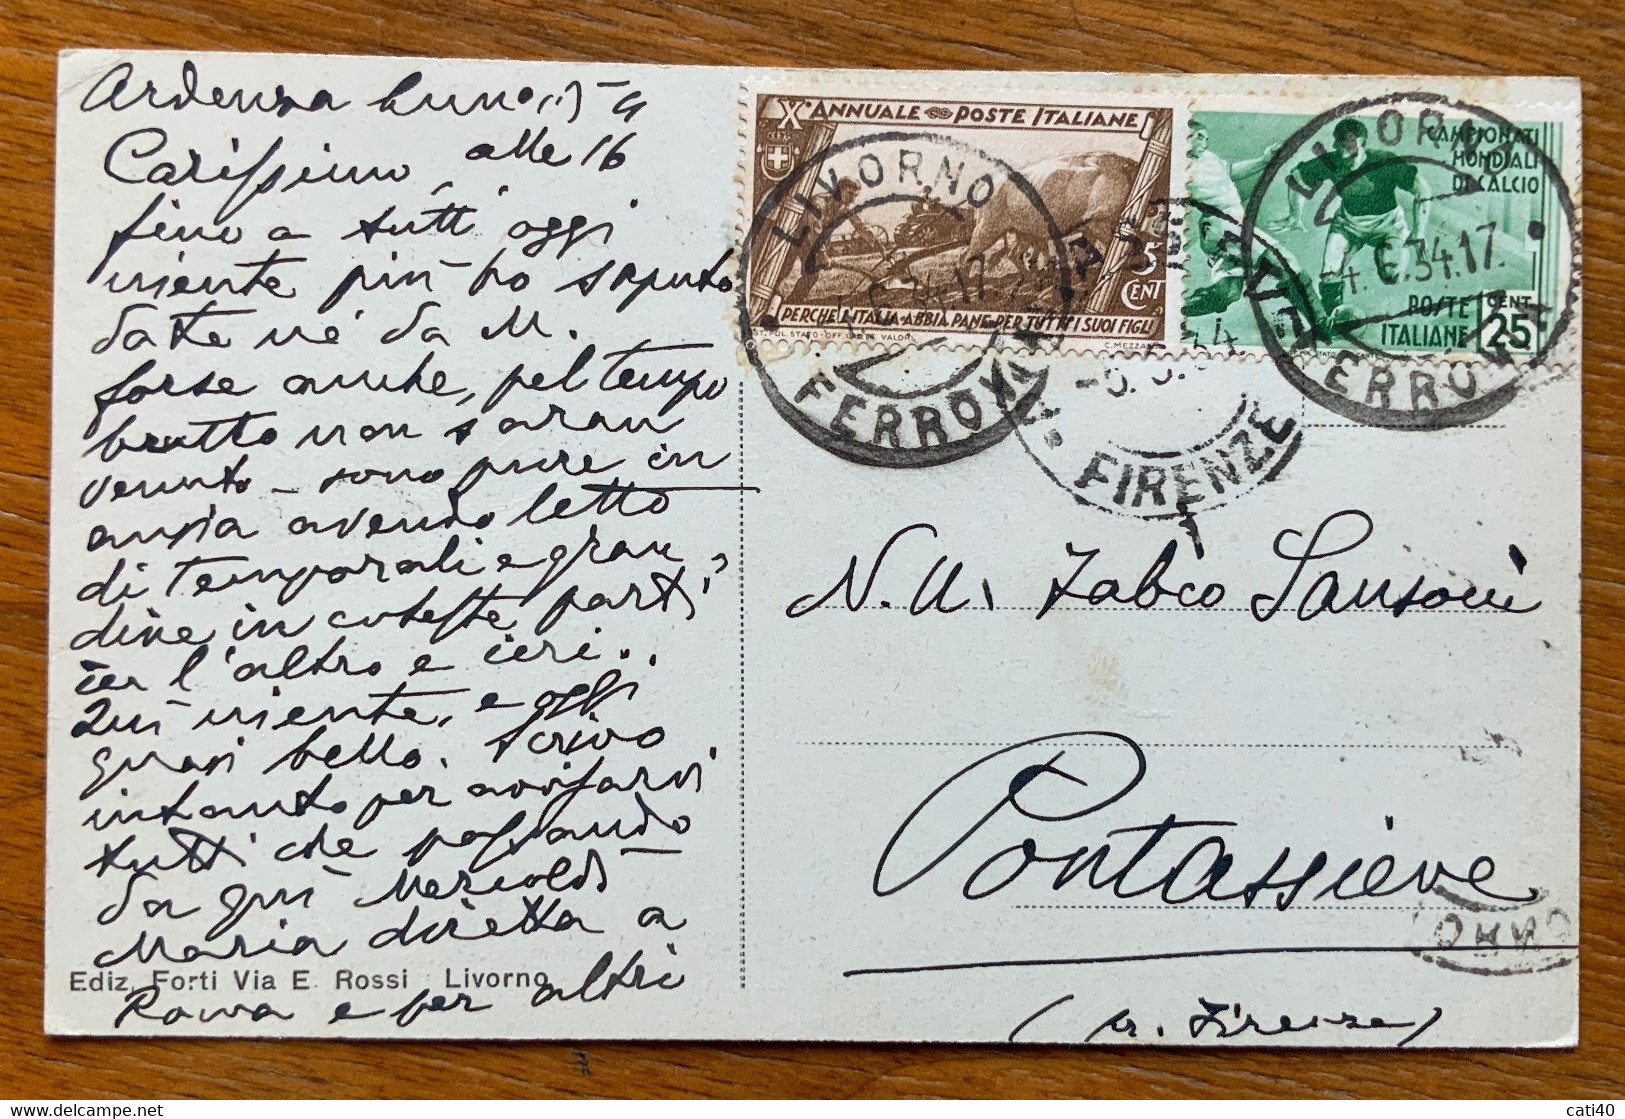 Ardenza Lunedì 4
Carissimo, alle 16
fino a tutt'oggi
niente più ho saputo
da te nè da M.
forse anche, pel tempo
brutto non saran
venuto - sono pure in
ansia avendo letto
di temporali e gran
dine in coteste parti
ier l'altro e ieri..
Qui niente, e oggi
quasi bello. Scrivo
intanto per avvisarvi
tutti che passando
da qui Mercoledì
Maria diretta a
Roma e per altri
Ediz. Forti Via E. Rossi Livorno
X° ANNUALE POSTE ITALIANE
PERCHE L'ITALIA ABBIA PANE PER TUTTI I SUOI FIGLI
5 CENT
IST. POL. STATO-OFF. CARTE VALORI.
C. MEZZANA
CAMPIONATI
MONDIALI
DI CALCIO
POSTE
ITALIANE
CENT
25
LIVORNO
FERROVIA
LIVORNO
4.6.34.17
FERROVIA
FIRENZE
N. U. Fabio Sansoni
Pontassieve
(pr. Firenze)
cati40